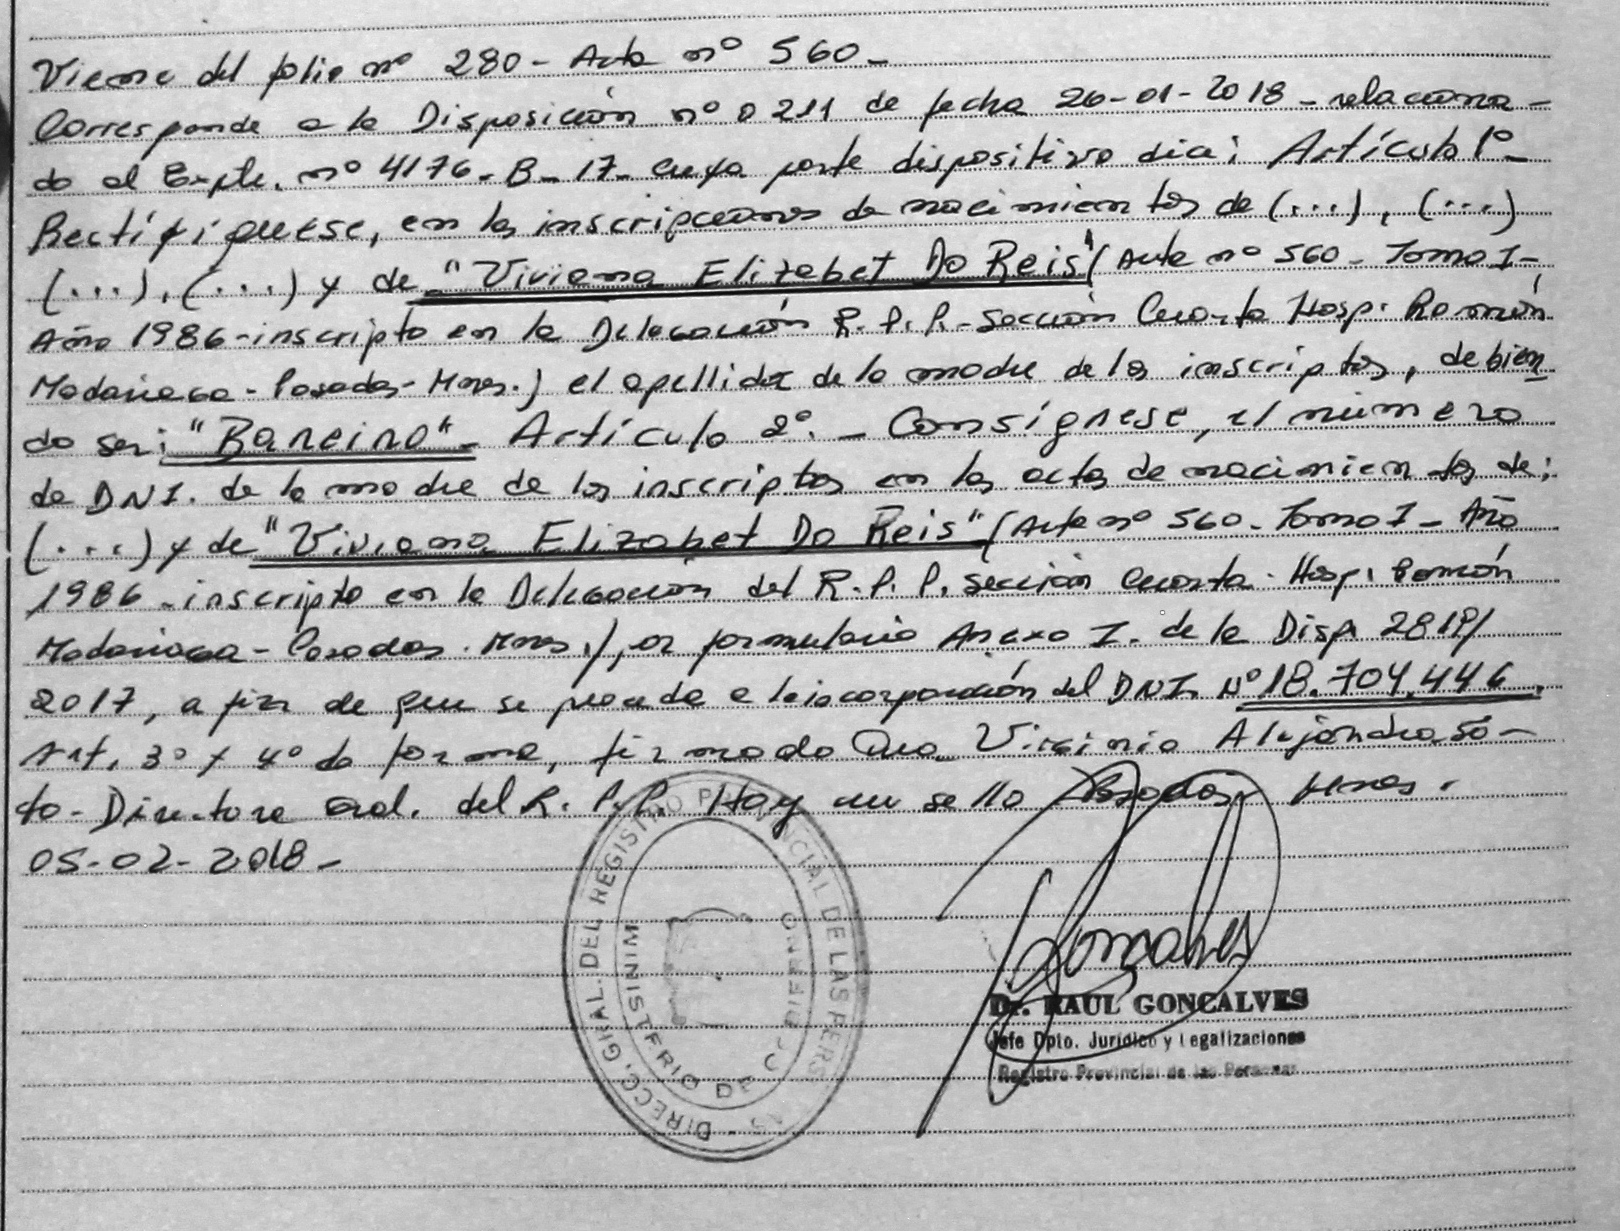 Viene del folio nº 280 - Acta nº 560 -
Corresponde a la Disposición nº 0211 de fecha 26-01-2018 - relaciona-
do al Expte. nº 4176-B-17- cuya parte dispositiva dice: Artículo 1º-
Rectifíquese, en las inscripciones de nacimientos de (...), (...)
(...), (...) y de "Viviana Elizabet Do Reis" (Acta nº 560 - Tomo I -
Año 1986 - inscripto en la Delegación R.P.P. - Sección Cuarta Hosp. Ramón
Madariaga - Posadas - Mnes.) el apellido de la madre de los inscriptos, debien
do ser: "Bareiro" - Artículo 2º. - Consígnese, el número
de DNI. de la madre de los inscriptos en las actas de nacimientos de:
(...) y de "Viviana Elizabet Do Reis" (Acta nº 560 - Tomo I - Año
1986 - inscripto en la Delegación del R.P.P. Sección Cuarta. Hosp. Ramón
Madariaga - Posadas. Mnes.), formulario Anexo I. de la Disp. 2819/
2017, a fin de que se proceda a la incorporación del DNI. Nº 18.704.446.
Art. 3º y 4º de forma, firmado Dra. Virginia Alejandra So-
to - Directora Gral. del R.P.P. Hay un sello Posadas, Mnes.
05-02-2018 -
DIRECC. GRAL. DEL REGISTRO PROVINCIAL DE LAS PERS
MINISTERIO DE
Goncalves
Dr. RAUL GONCALVES
Jefe Dpto. Jurídico y Legalizaciones
Registro Provincial de las Personas